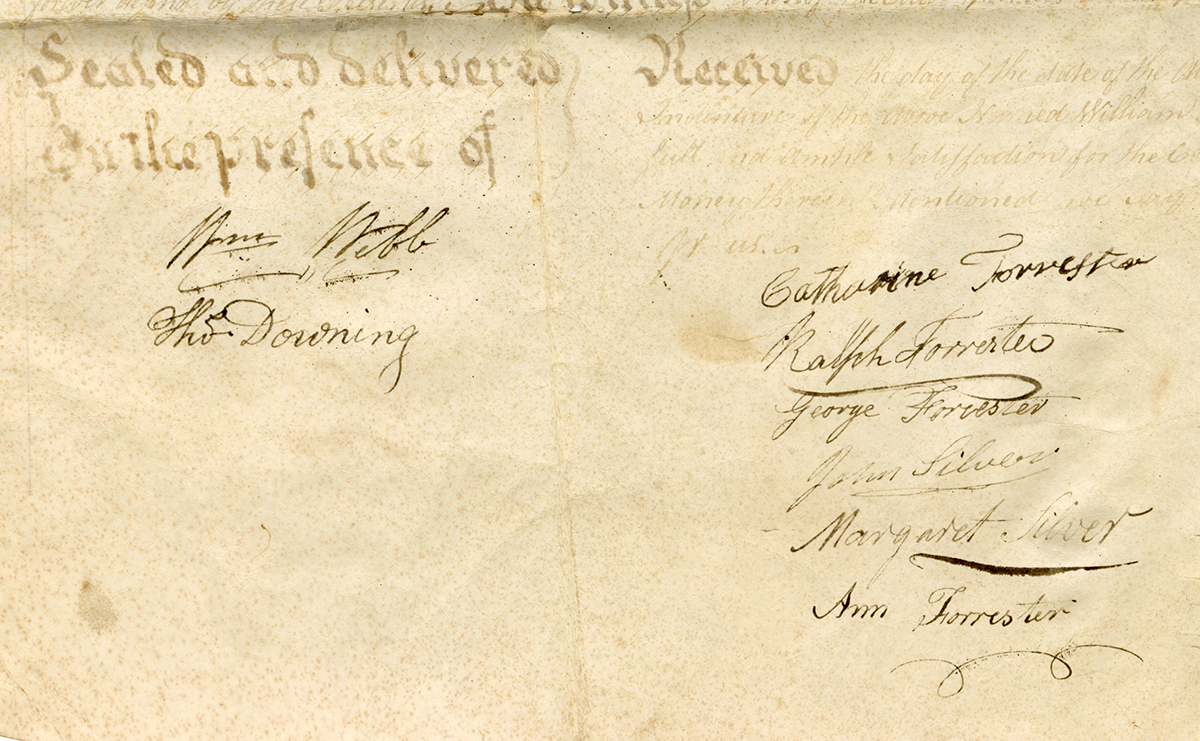 forever defend by these
Sealed and delivered
In the presence of
Wm Webb
Thos Downing
Received the day of the date of the
Indenture of the above Named William
full and ample Satisfaction for the
Money therein Mentioned we say
by us.
Catharine Forrester
Ralph Forrester
George Forrester
John Silver
Margaret Silver
Ann Forrester